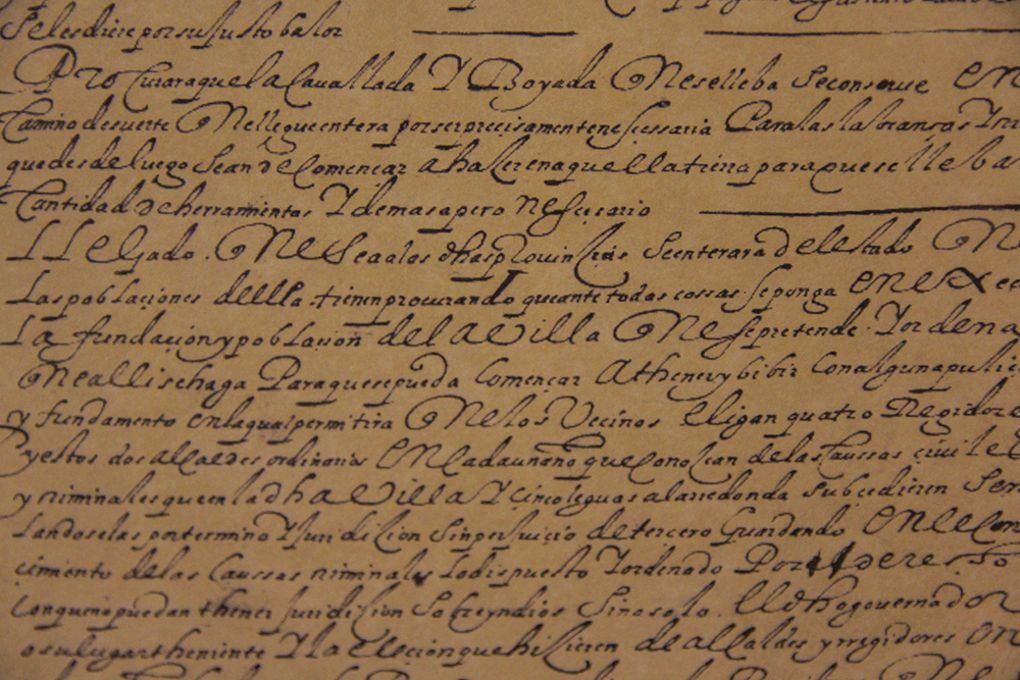 se les diere por su justo balor
Procurara que la cavallada Y Boyada que se lleba se conserve en
Camino de suerte que llegue entera por ser precisamente nescessaria Para las labransas Y
que desde luego se an de començar a hacer en aquella tierra para que se lleba
Cantidad de herramientas Y demas apero nescesario
LLegado que sea a las dhas Provincias se enterara del estado que
Las poblaciones de ella tienen procurando que ante todas cossas se ponga en
La fundacion y poblacion de la Villa que se pretende Y ordena
que alli se haga Para que se pueda Començar A thener y bibir con alguna
y fundamento en la qual permitira que los Vecinos elijan quatro Regidores
y estos dos alcaldes ordinarios en cada un año que conozcan de las caussas civiles
y criminales que en la dha Villa Y cinco leguas a la redonda subcedieren
landoselas por termino Y Juridicion Sin perjuicio de tercero Guardando en el
cimiento de las caussas criminales Lo dispuesto Y ordenado Por
Con que no puedan thener Juridicion Sobre yndios Sino solo El dho governador
o su lugartheniente Y la eleccion que hicieren de alcaldes y rregidores en